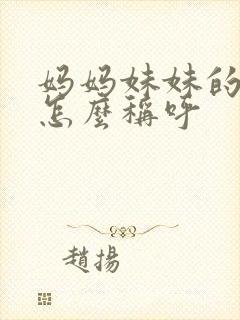 妈妈妹妹的
怎麼稱呼
趙揚